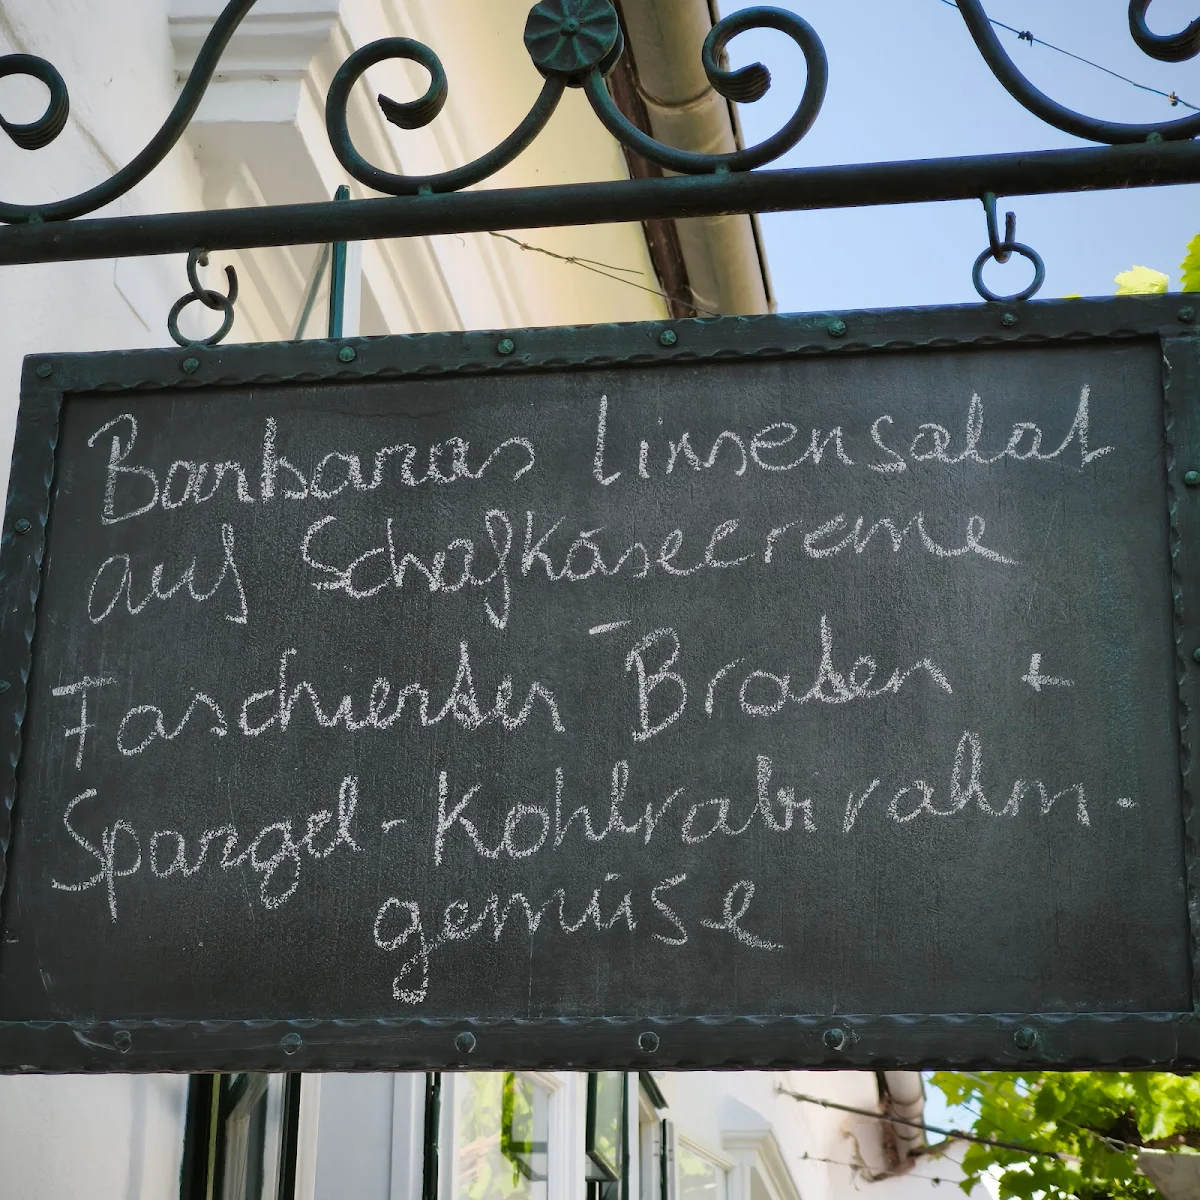 Barbaras Linsensalat
auf Schafkäsecreme
-
Faschierter Braten +
Spargel-Kohlrabirahm-
gemüse